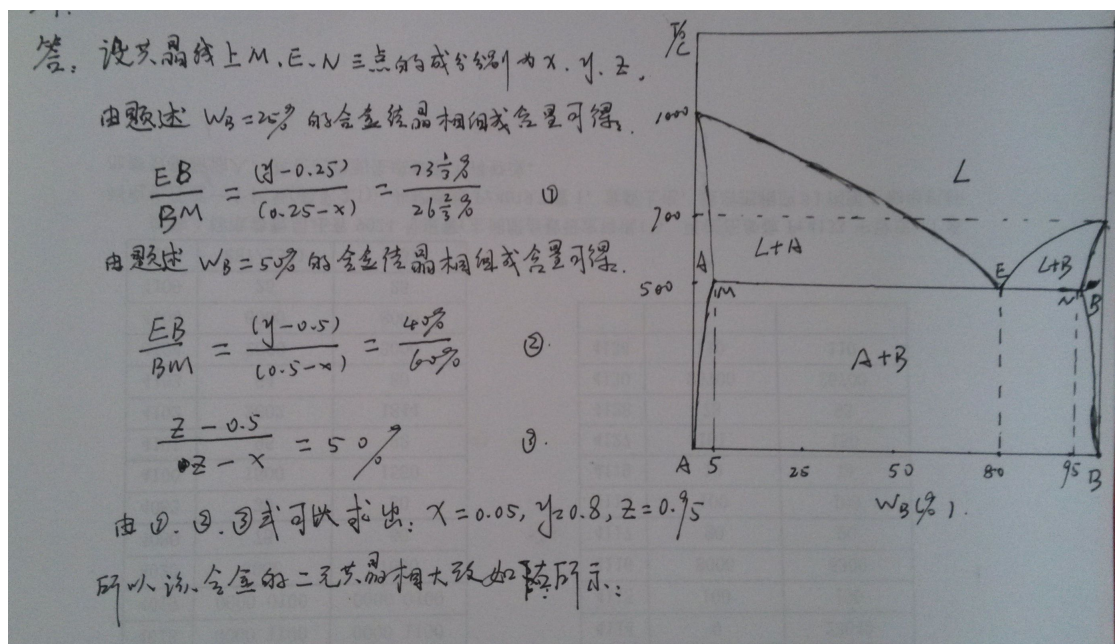 答: 设共晶线上M、E、N三点的成分分别为x、y、z,
由题述 WB=25% 的合金结晶相组成含量可得:
EB/BM = (y-0.25)/(0.25-x) = 73⅓%/26⅔% ①
由题述 WB=50% 的合金结晶相组成含量可得:
EB/BM = (y-0.5)/(0.5-x) = 40%/60% ②.
z-0.5/z-x = 50% ③.
由①、②、③式可以求出: x=0.05, y=0.8, z=0.95
所以该合金的二元共晶相大致如 所示:
T/℃
1000
L
700
L+A
A
E
L+B
500
M
N
B
A+B
A 5 25 50 80 95 B
WB(%).